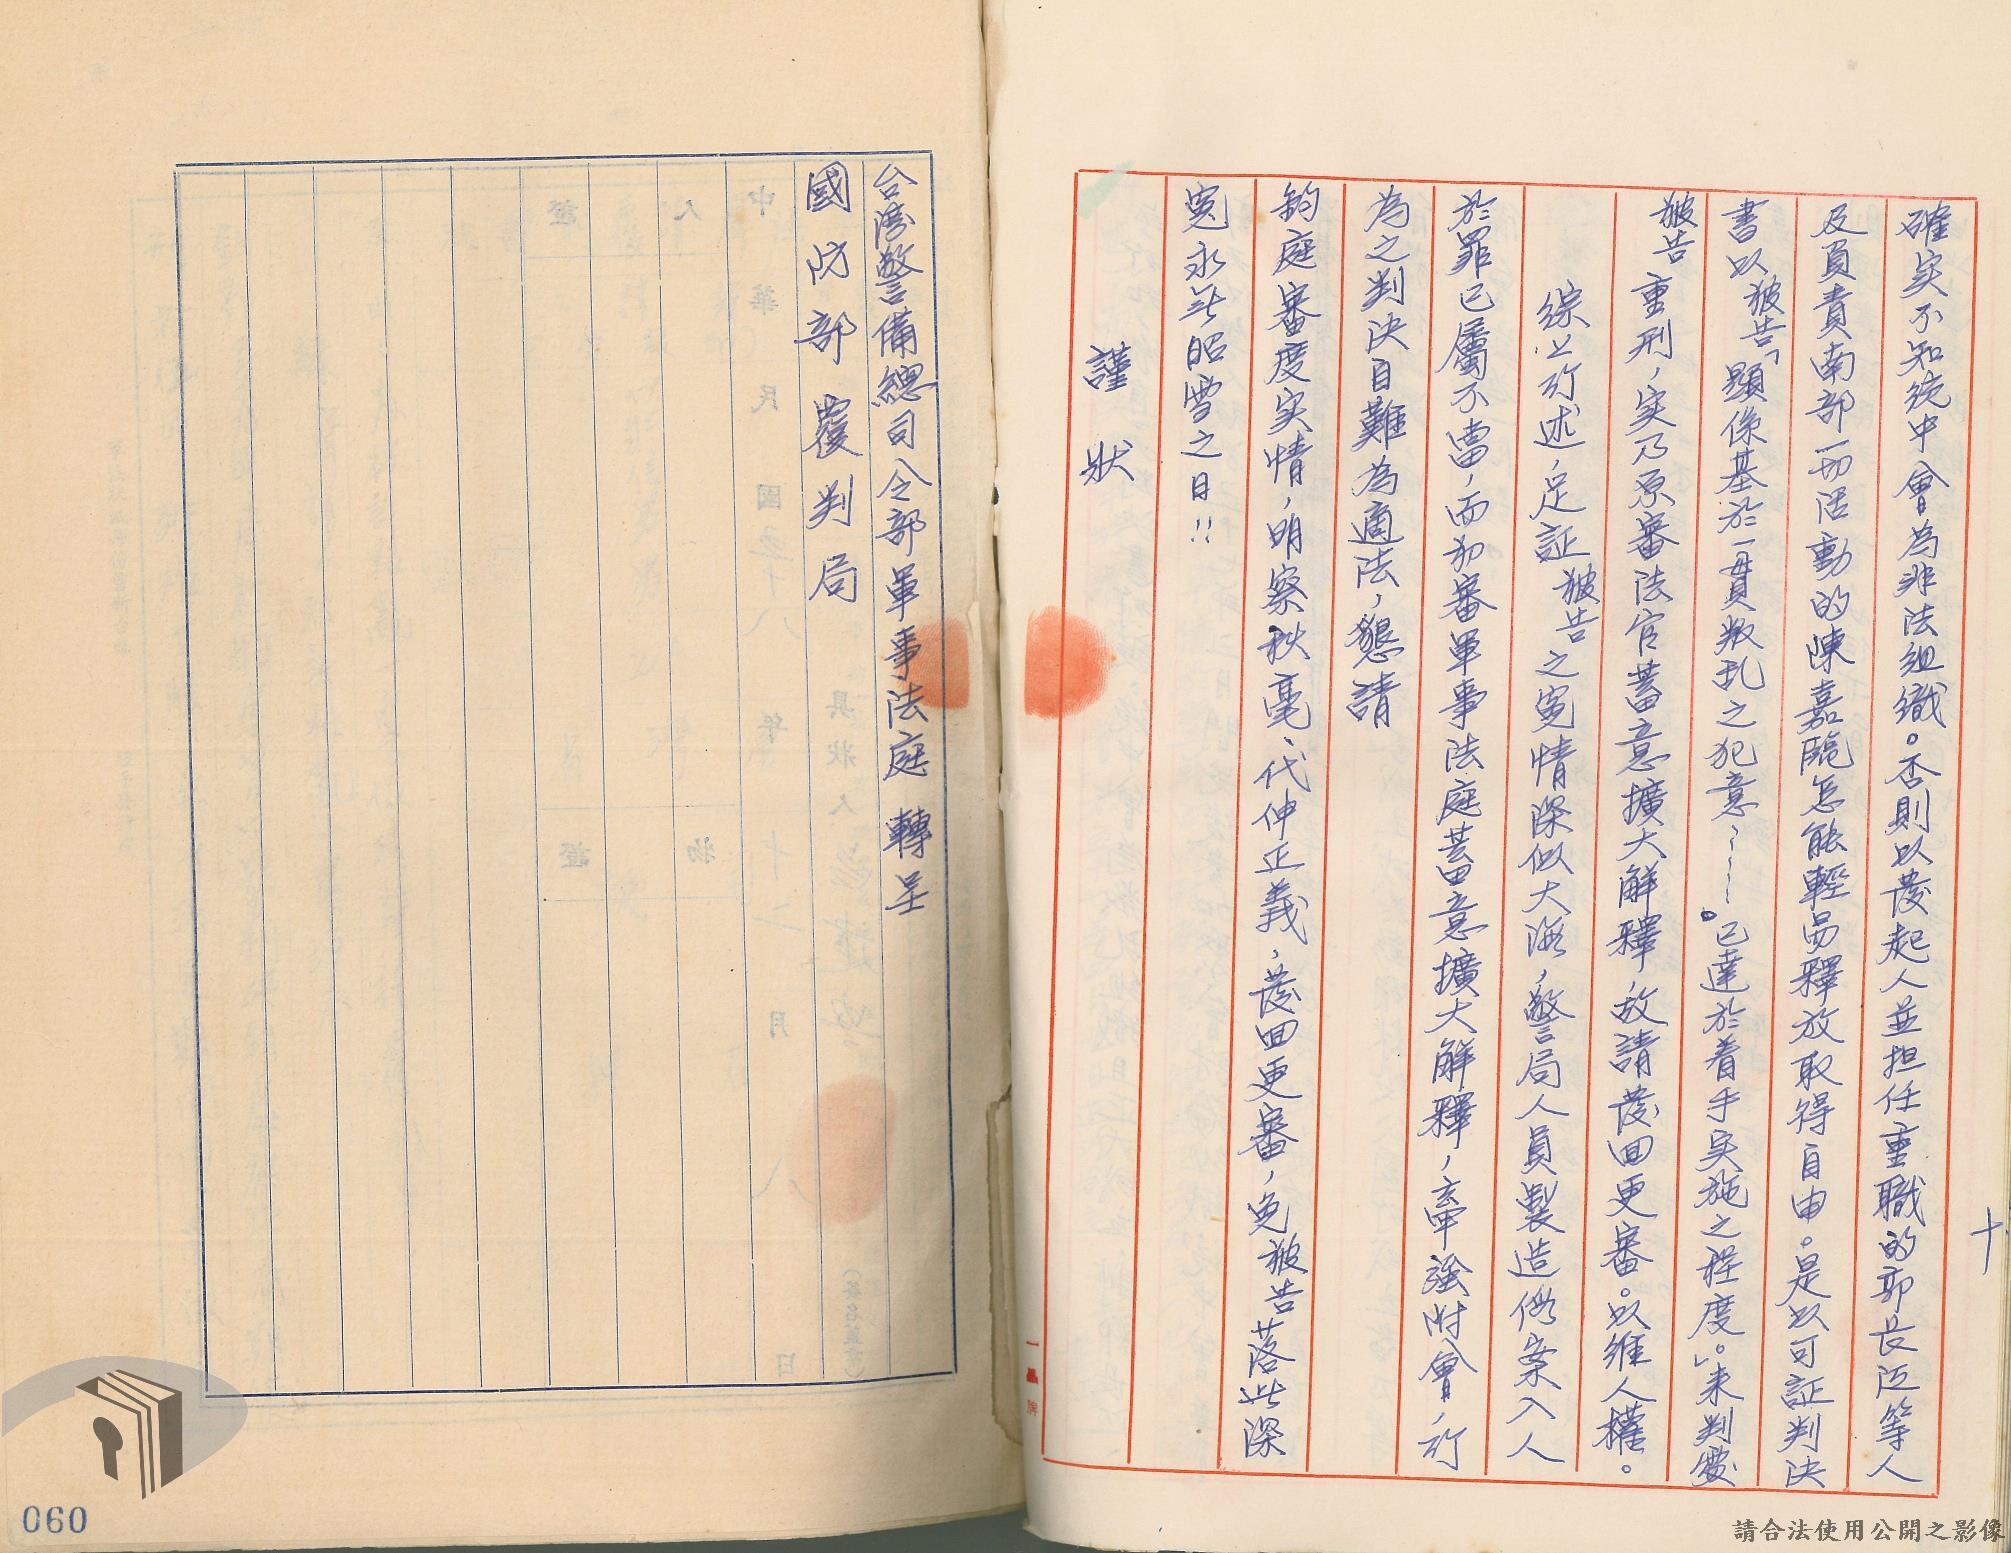 十
確实不知統中會為非法组織。否則以發起人並担任重職的郭長江等人
及負責南部一切活動的陳嘉臨怎能輕易釋放取得自由。是以可証判决
書以被告「顯係基於一貫叛乱之犯意~~~~。已達於着手実施之程度」。来判處
被告重刑，実乃原審法官蓄意擴大解釋，故請發回更審。以维人權。
綜上所述，足証被告之冤情深似大海，警局人員製造假案入人
於罪已屬不當，而初審軍事法庭蓄意擴大解釋，牽強附會，所
為之判决自難為適法，懇請
鈞庭審度实情，明察秋毫、代伸正義，發回更審，免被告落此深
冤永無昭雪之日!!
謹狀
一品牌
台湾警備總司令部軍事法庭 轉呈
國防部覆判局
060
請合法使用公開之影像